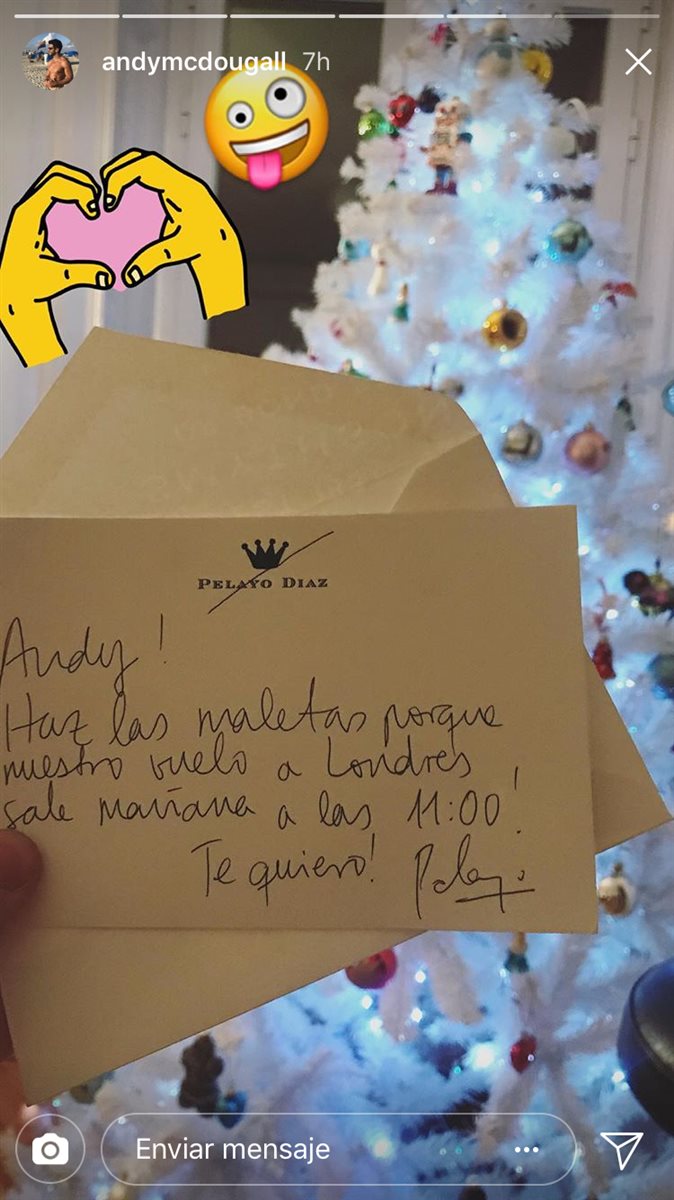 andymcdougall 7h
PELAYO DIAZ
Andy!
Haz las maletas porque
nuestro vuelo a Londres
sale mañana a las 11:00!
Te quiero! Pelayo
Enviar mensaje